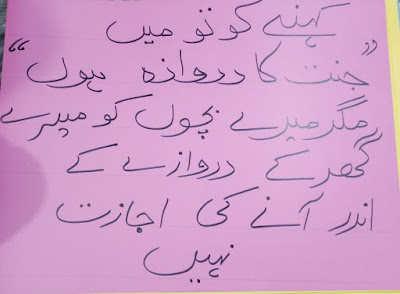 کہنے کو تو میں
”جنت کا دروازہ ہوں“
مگر میرے بچوں کو میرے
گھر کے دروازے کے
اندر آنے کی اجازت
نہیں